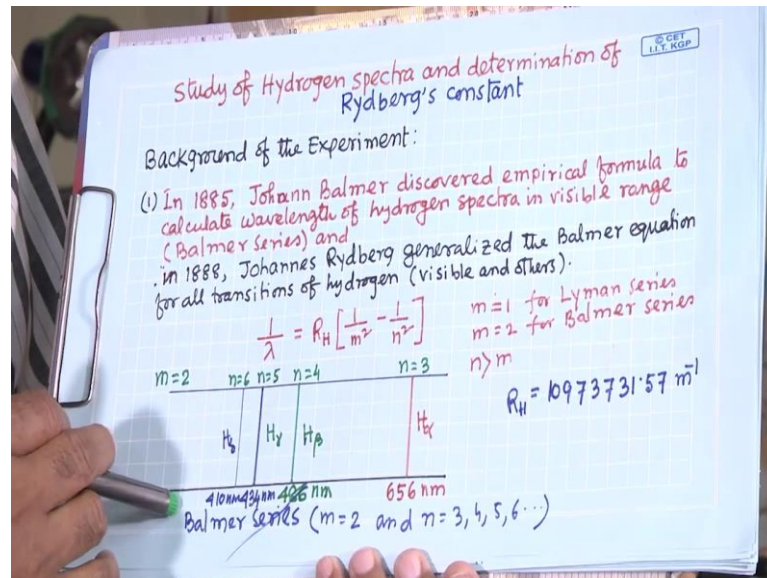 © CET
I.I.T. KGP
Study of Hydrogen spectra and determination of
Rydberg's constant
Background of the Experiment:
(1) In 1885, Johann Balmer discovered empirical formula to
calculate wavelength of hydrogen spectra in visible range
(Balmer series) and
in 1888, Johannes Rydberg generalized the Balmer equation
for all transitions of hydrogen (visible and others).
1/λ = R_H [1/m² - 1/n²]
m=1 for Lyman series
m=2 for Balmer series
n>m
R_H = 10973731.57 m⁻¹
m=2 n=6 n=5 n=4 n=3
H_δ H_γ H_β H_α
410nm 434nm 486 nm 656 nm
Balmer series (m=2 and n=3, 4, 5, 6...)